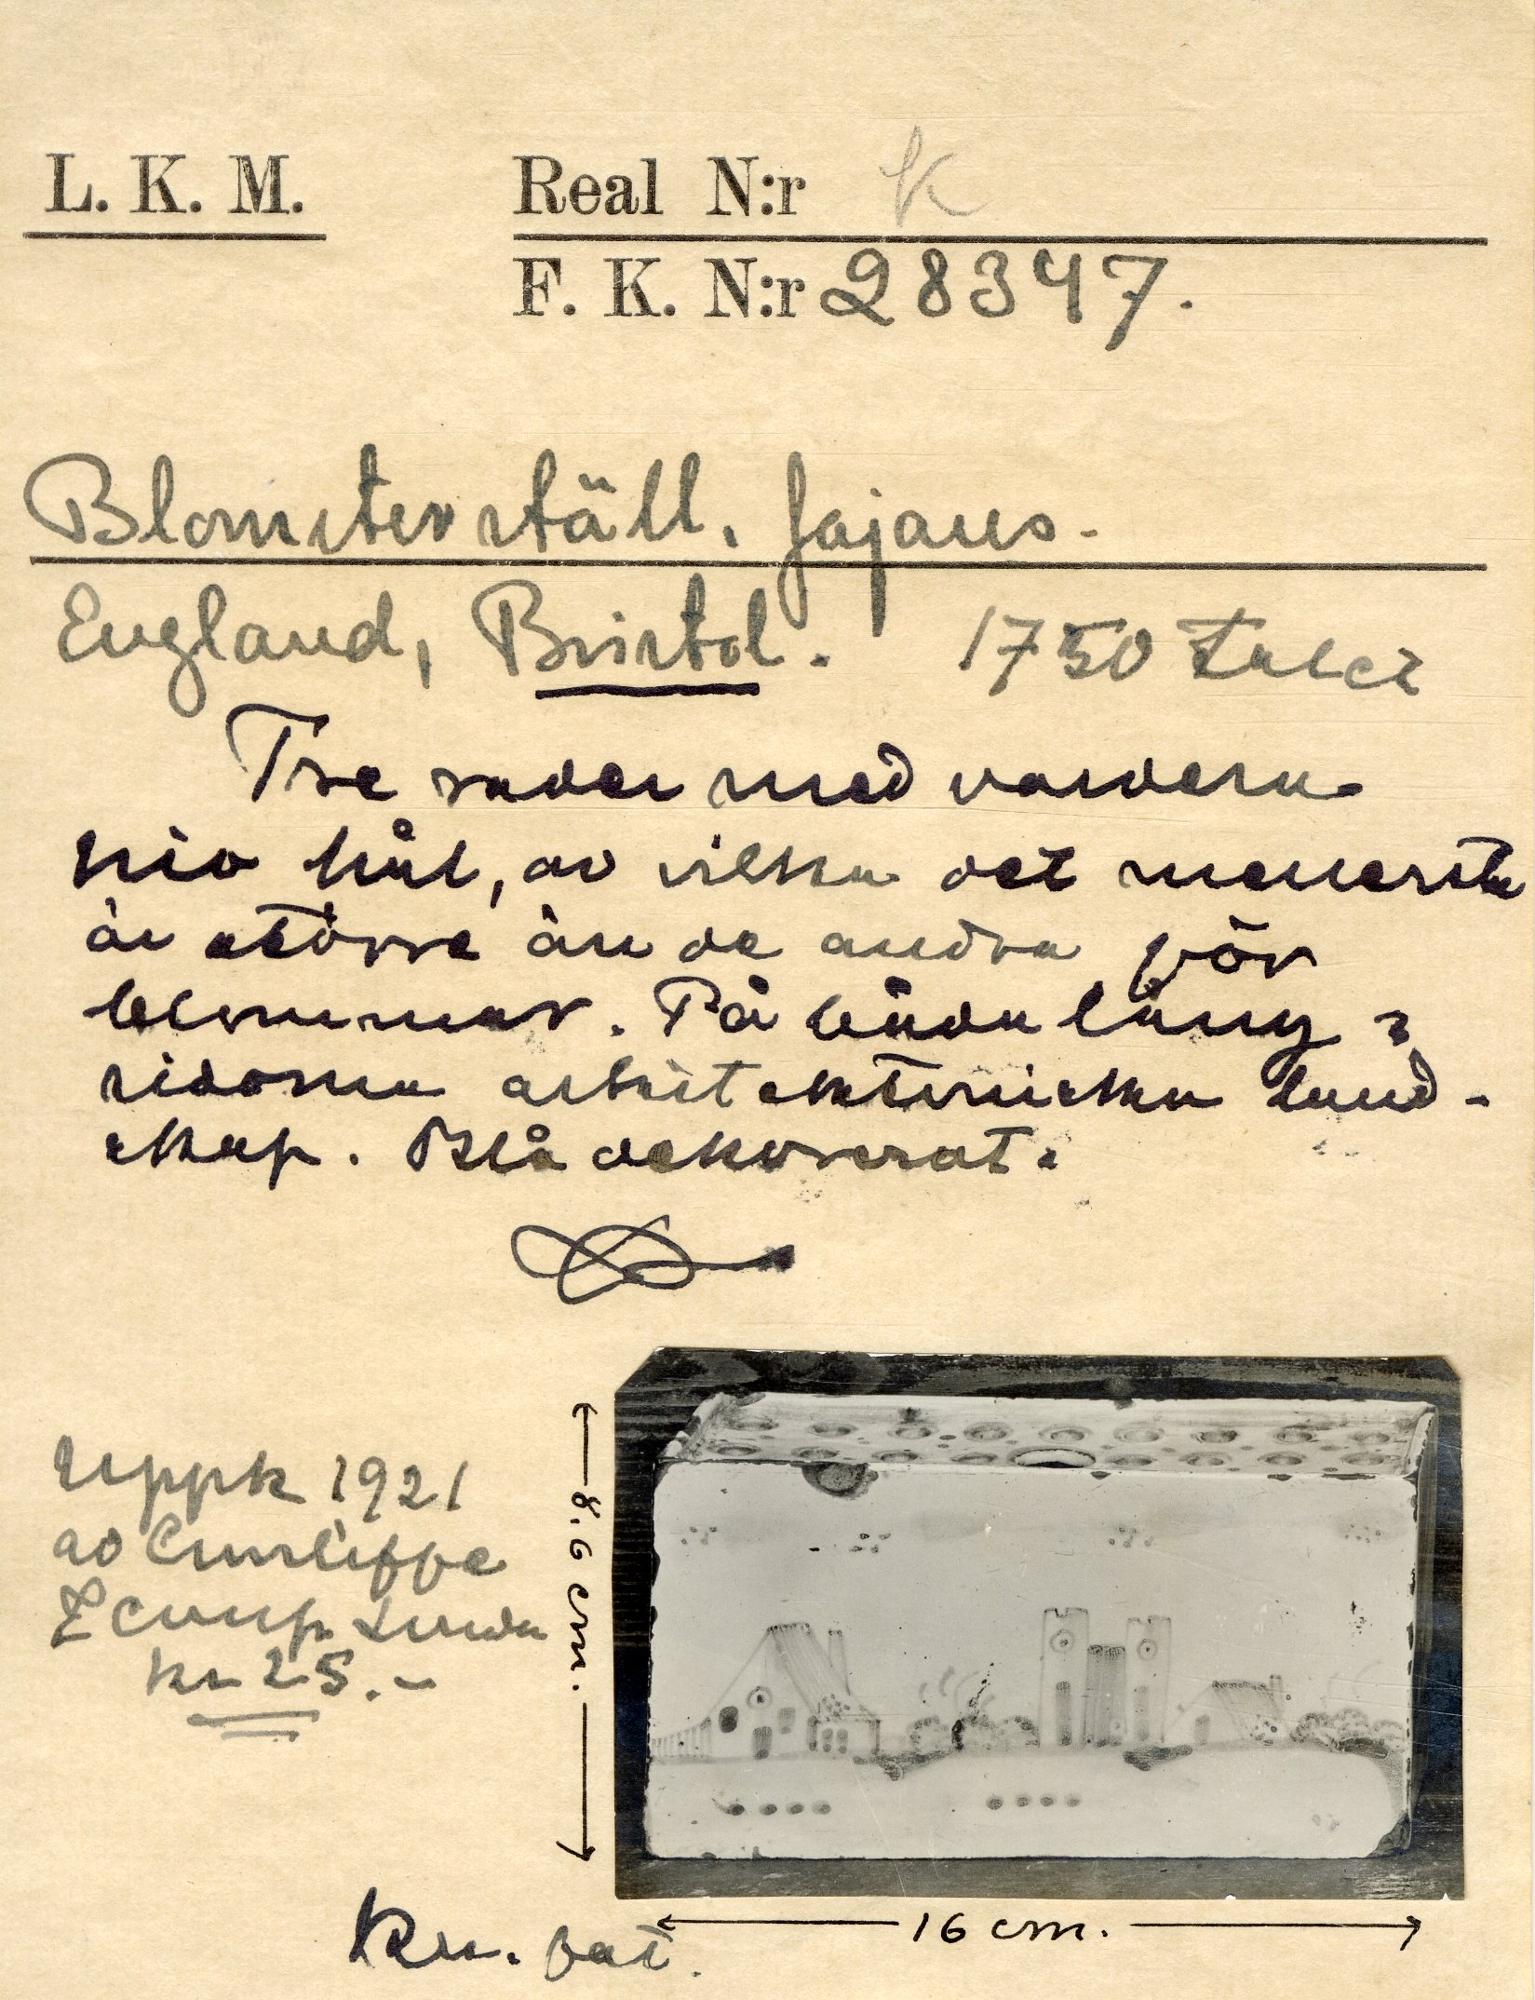 L. K. M.
Real N:r K
F. K. N:r 28347.
Blomsterställ, fajans.
England, Bristol. 1750 talet
Tre rader med vardera
nio hål, av vilka det mellersta
är större än de andra för
blommor. På båda lång-
sidorna arkitektoniska land-
skap. Blå dekorerat.
Uppk 1921
av Cunliffe
& Comp. Lunda
kr 25.-
8.6 cm.
16 cm.